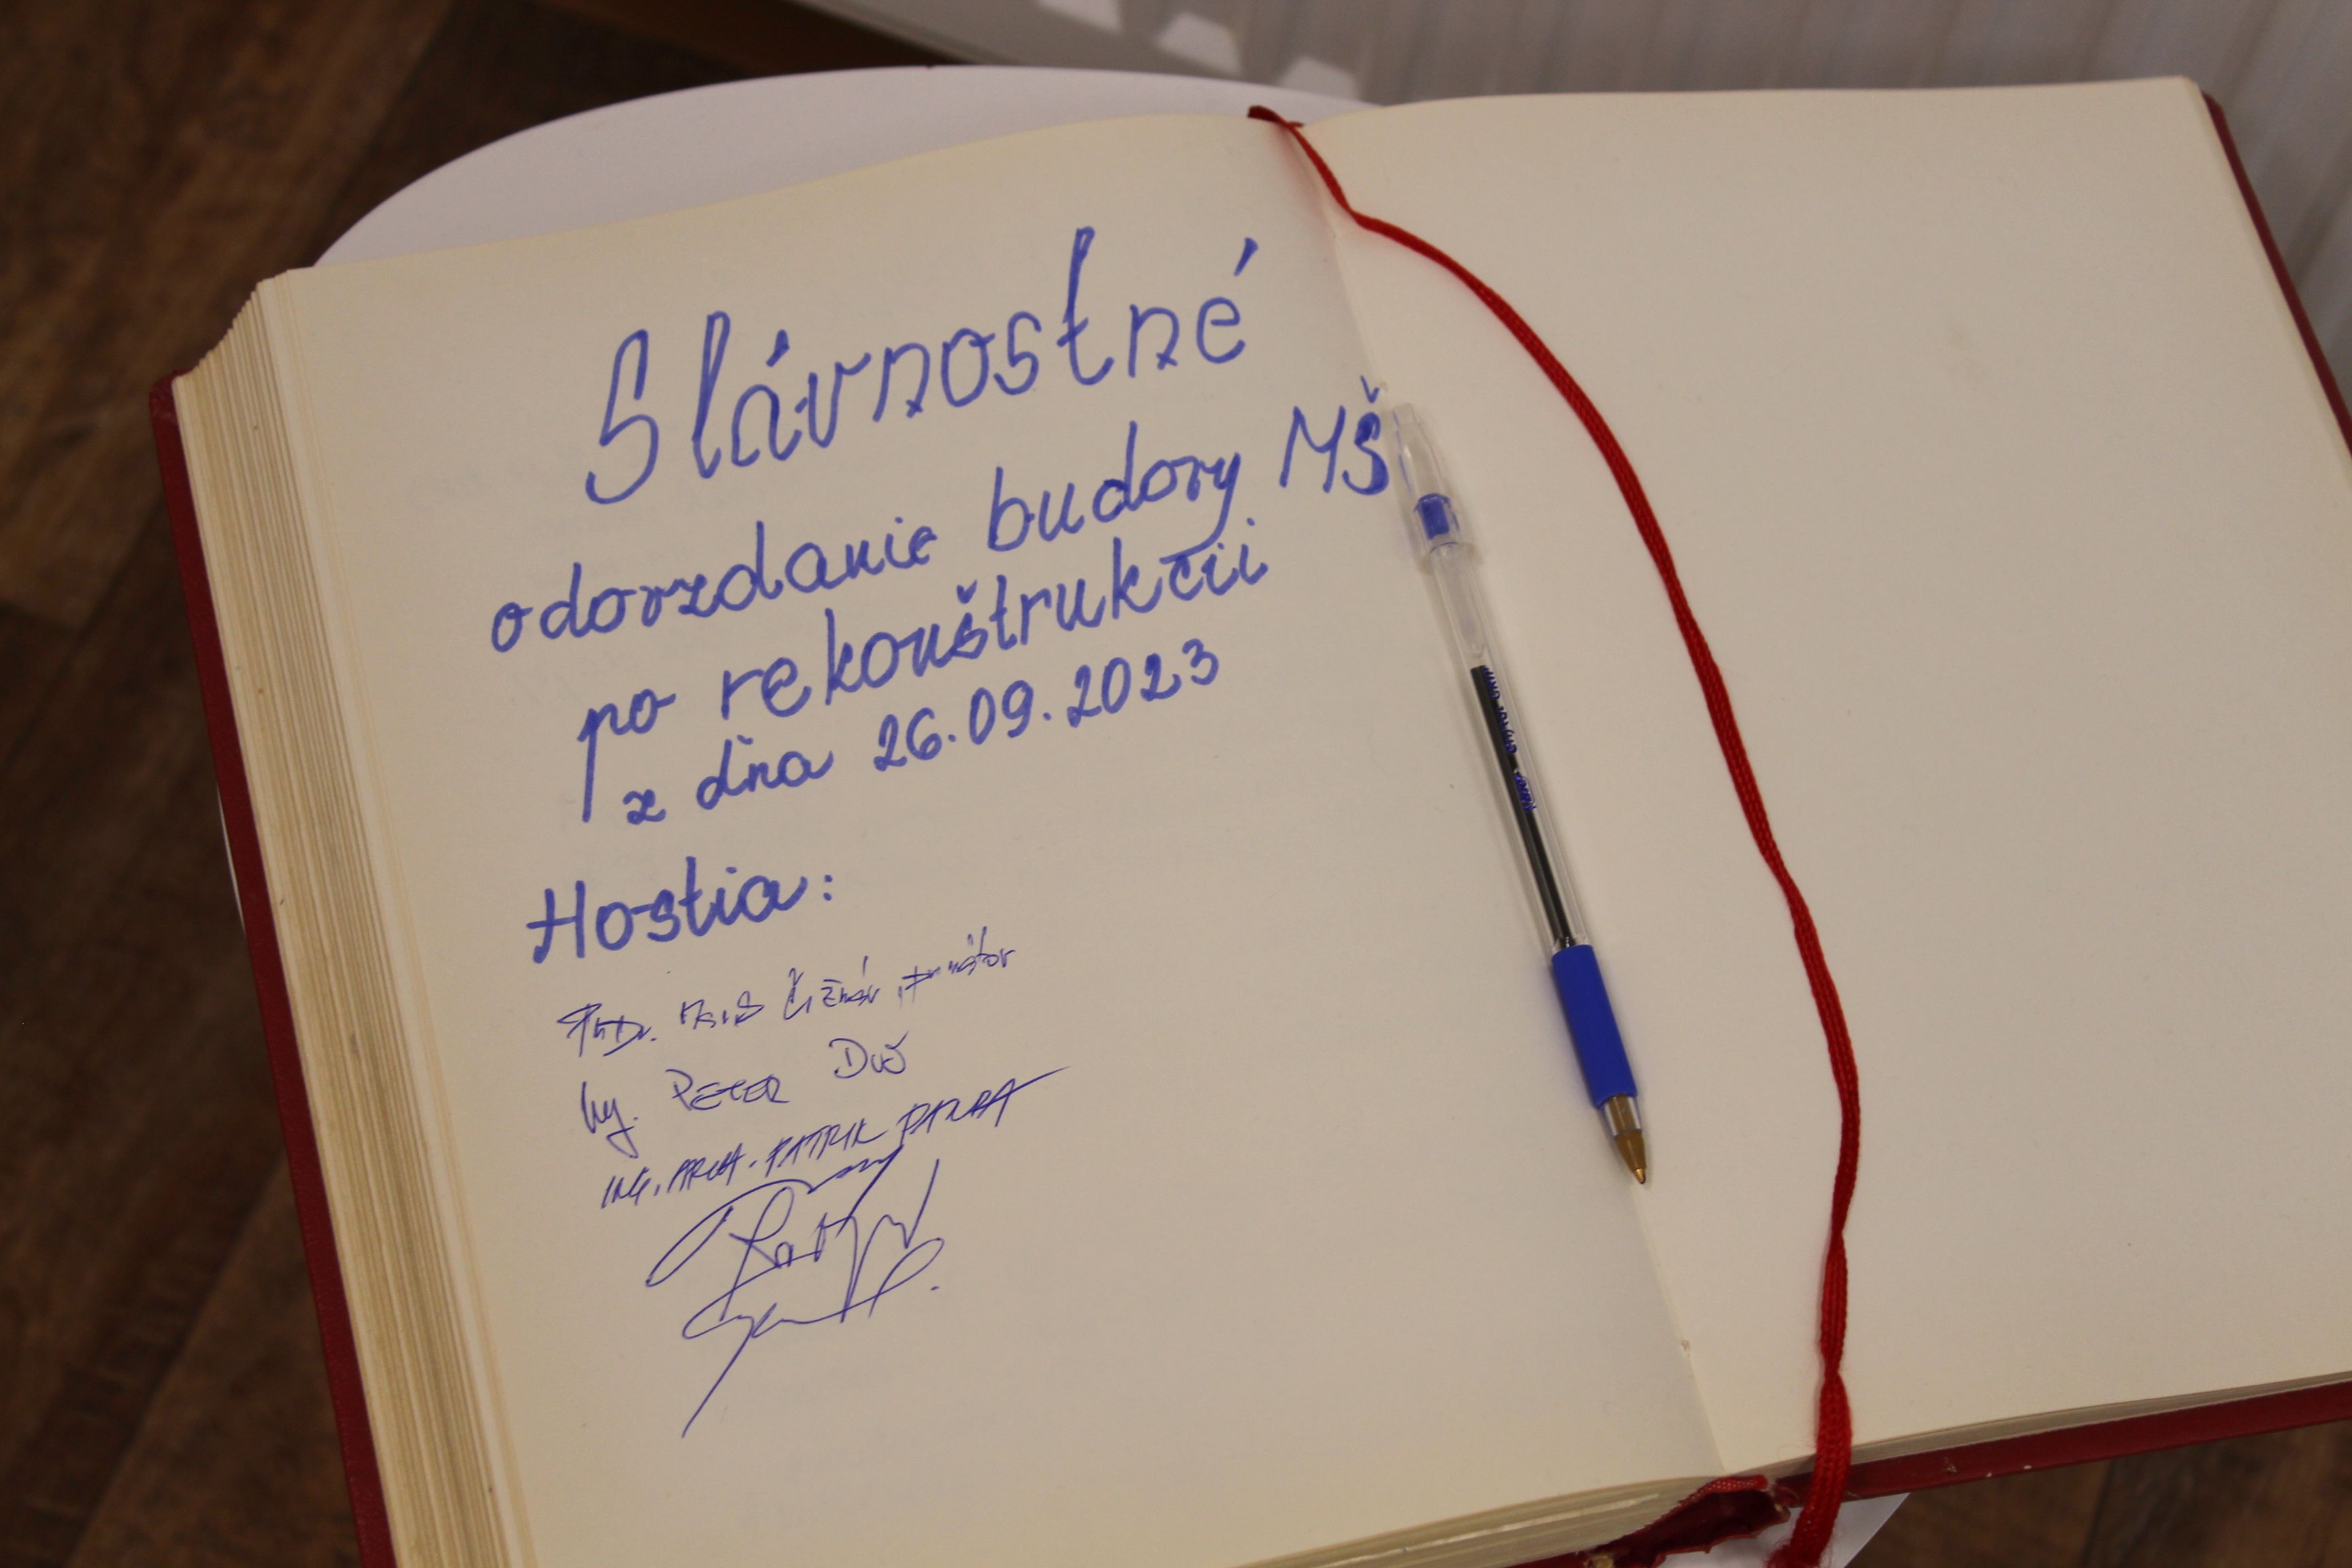 Slávnostné
odovzdanie budovy MŠ
po rekonštrukcii
z dňa 26.09.2023
Hostia:
PhDr. Čižmár, primátor
Ing. PETER Duš
ING. ARCH. PATRIK PANDA